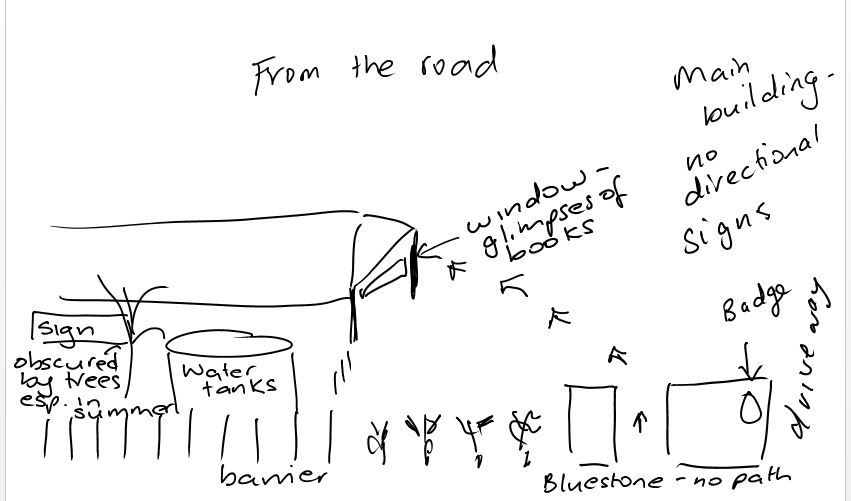 From the road
Main
building -
no
directional
signs
window -
glimpses of
books
Badge
driveway
sign
obscured
by trees
esp. in
summer
Water
tanks
barrier
Bluestone - no path